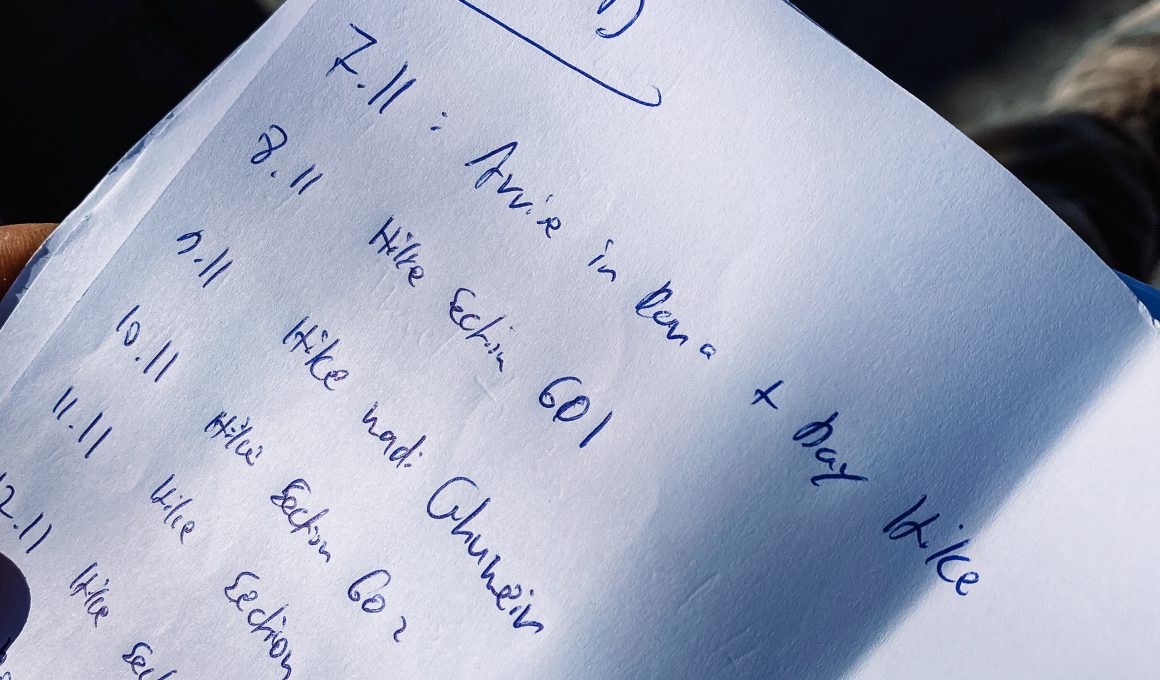 7.11 : Arrive in Dana + Day Hike
8.11 Hike Section 601
9.11 Hike Wadi Ghuweir
10.11 Hike Section 602
11.11 Hike Section
12.11 Hike Sect